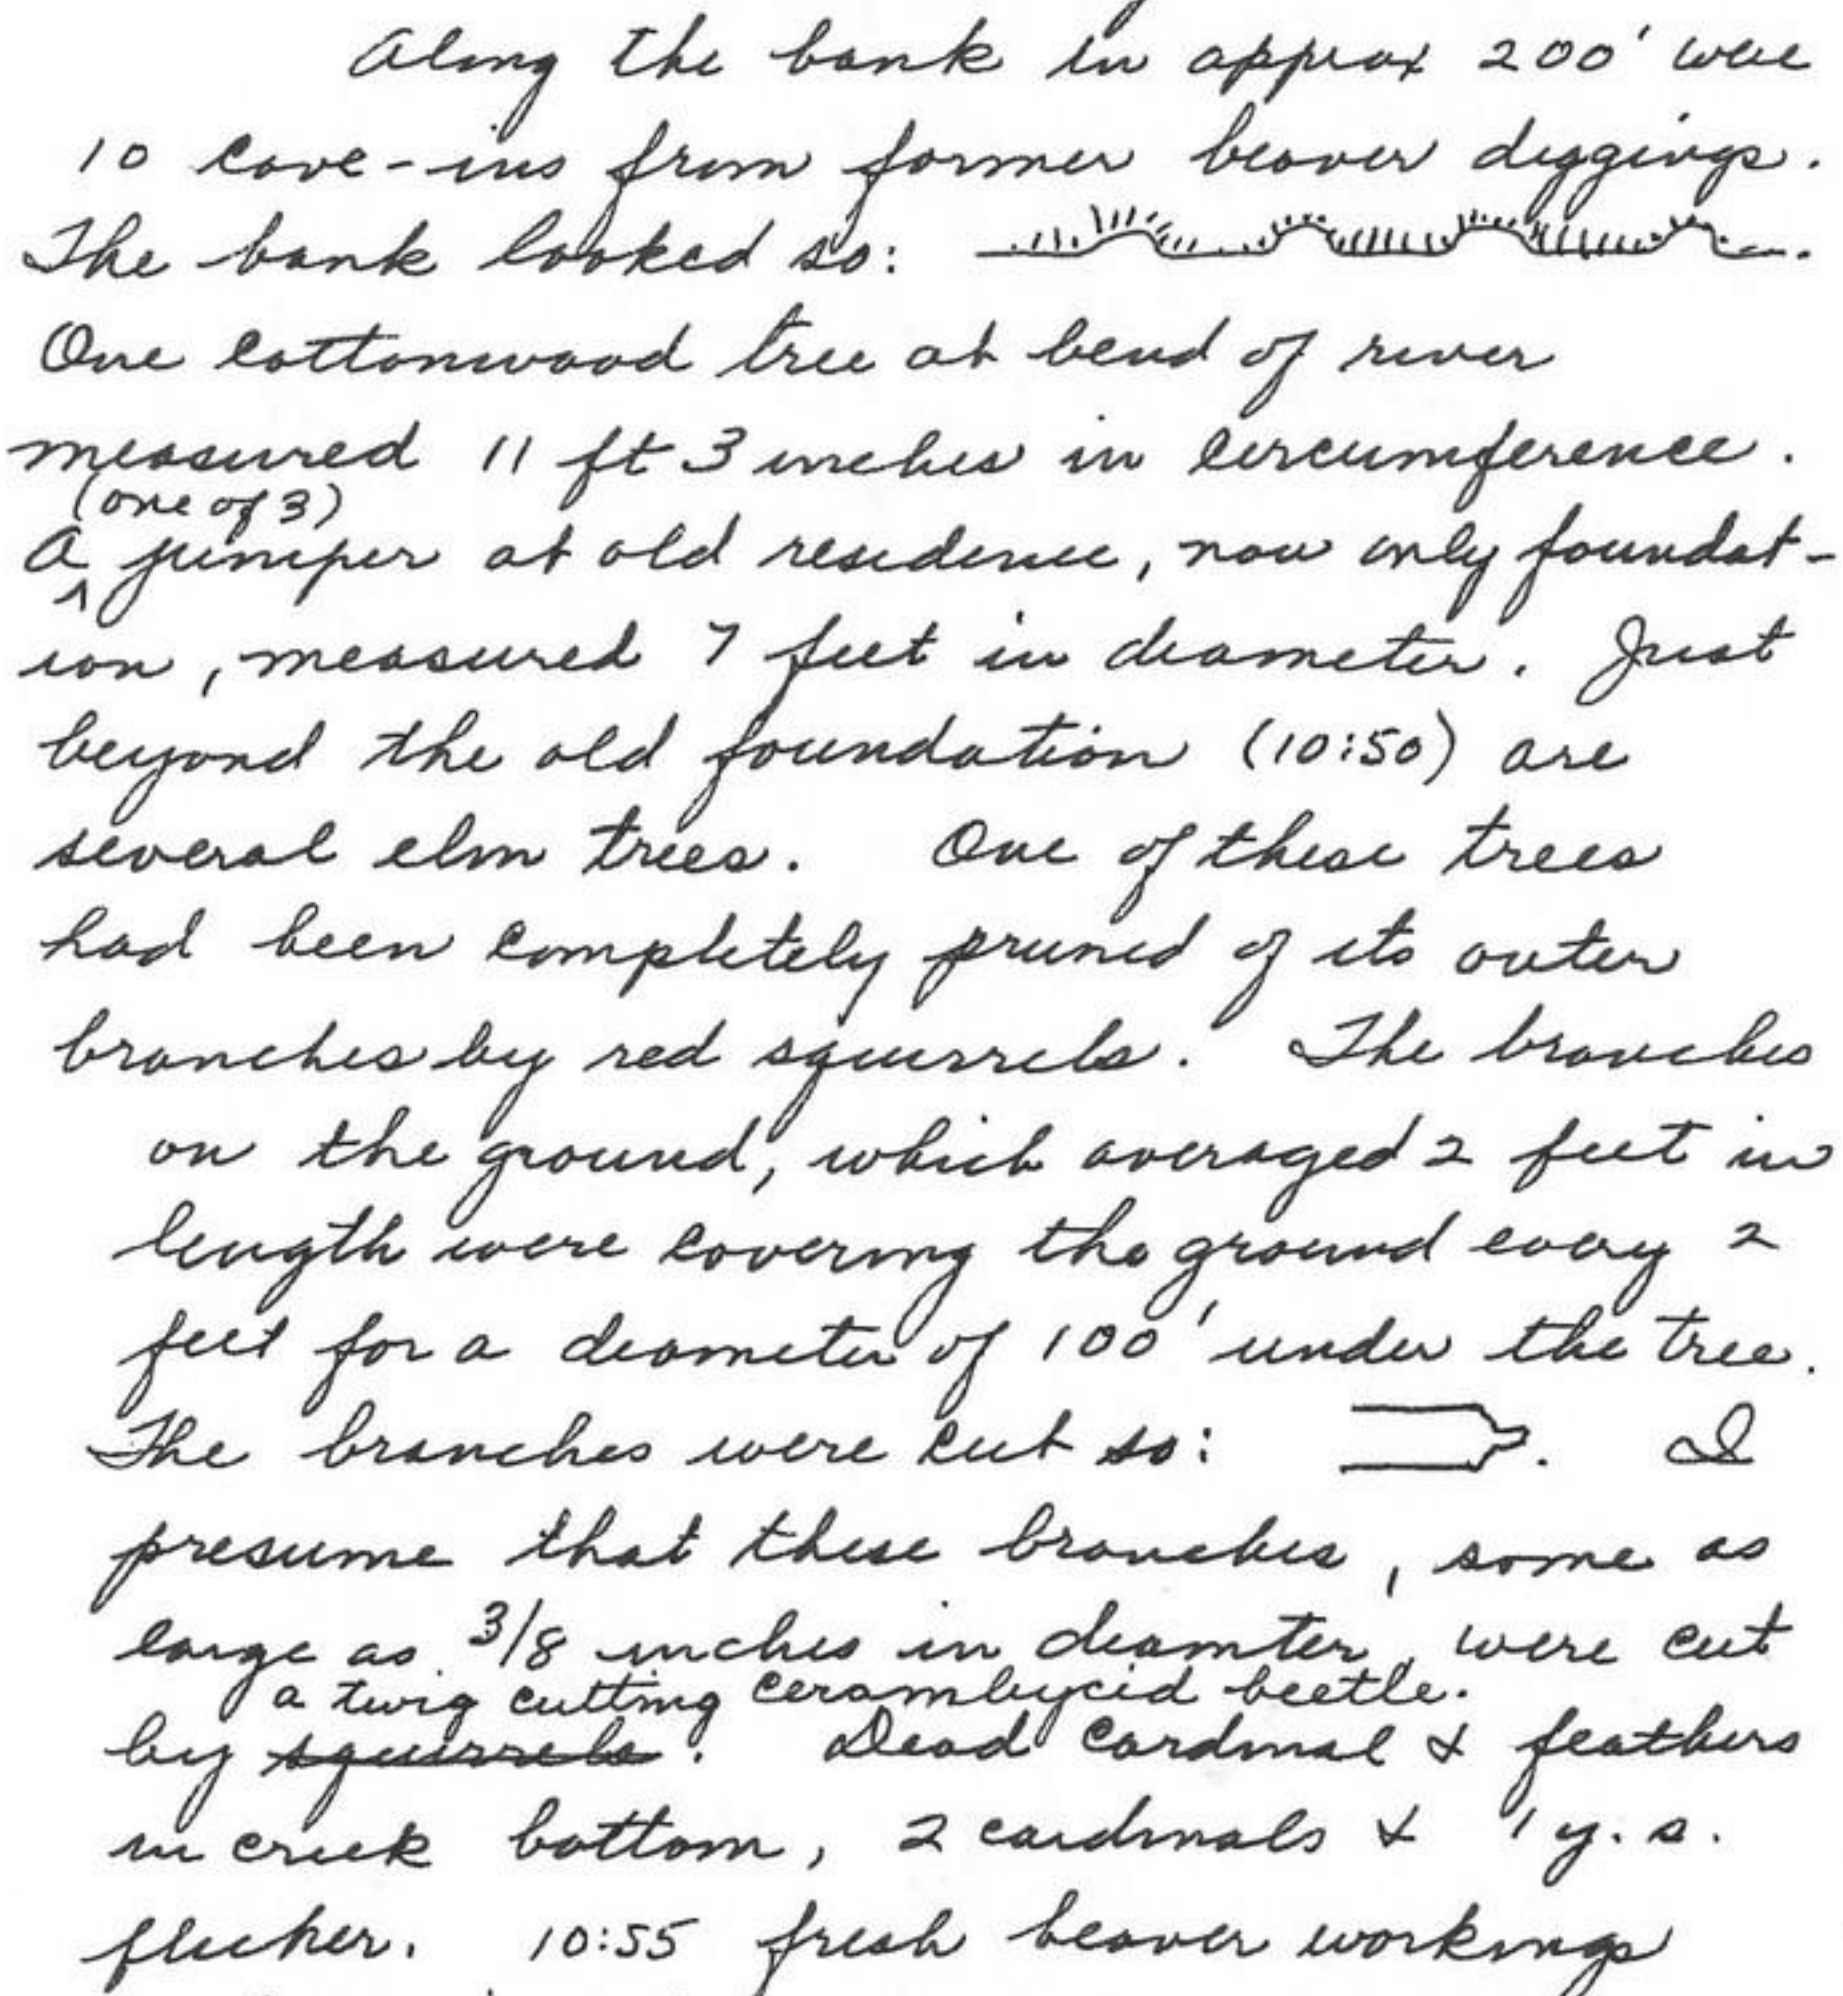 Along the bank in approx 200' were
10 cave-ins from former beaver diggings.
The bank looked so:
One cottonwood tree at bend of river
measured 11 ft 3 inches in circumference.
(one of 3)
A ^ juniper at old residence, now only foundat-
ion, measured 7 feet in diameter. Just
beyond the old foundation (10:50) are
several elm trees. One of these trees
had been completely pruned of its outer
branches by red squirrels. The branches
on the ground, which averaged 2 feet in
length were covering the ground every 2
feet for a diameter of 100' under the tree.
The branches were cut so: . I
presume that these branches, some as
large as 3/8 inches in diamter, were cut
a twig cutting cerambycid beetle.
by squirrels. Dead cardinal & feathers
in creek bottom, 2 cardinals & 1 y. s.
flicker. 10:55 fresh beaver workings